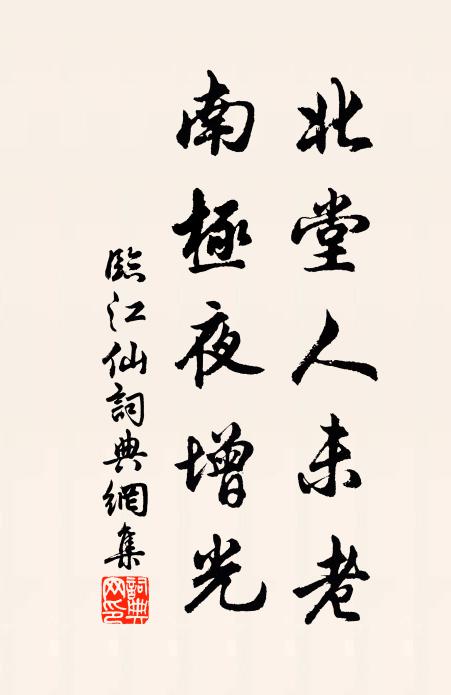 北堂人未老
南極夜增光
臨江仙詞典網集
詞典網印